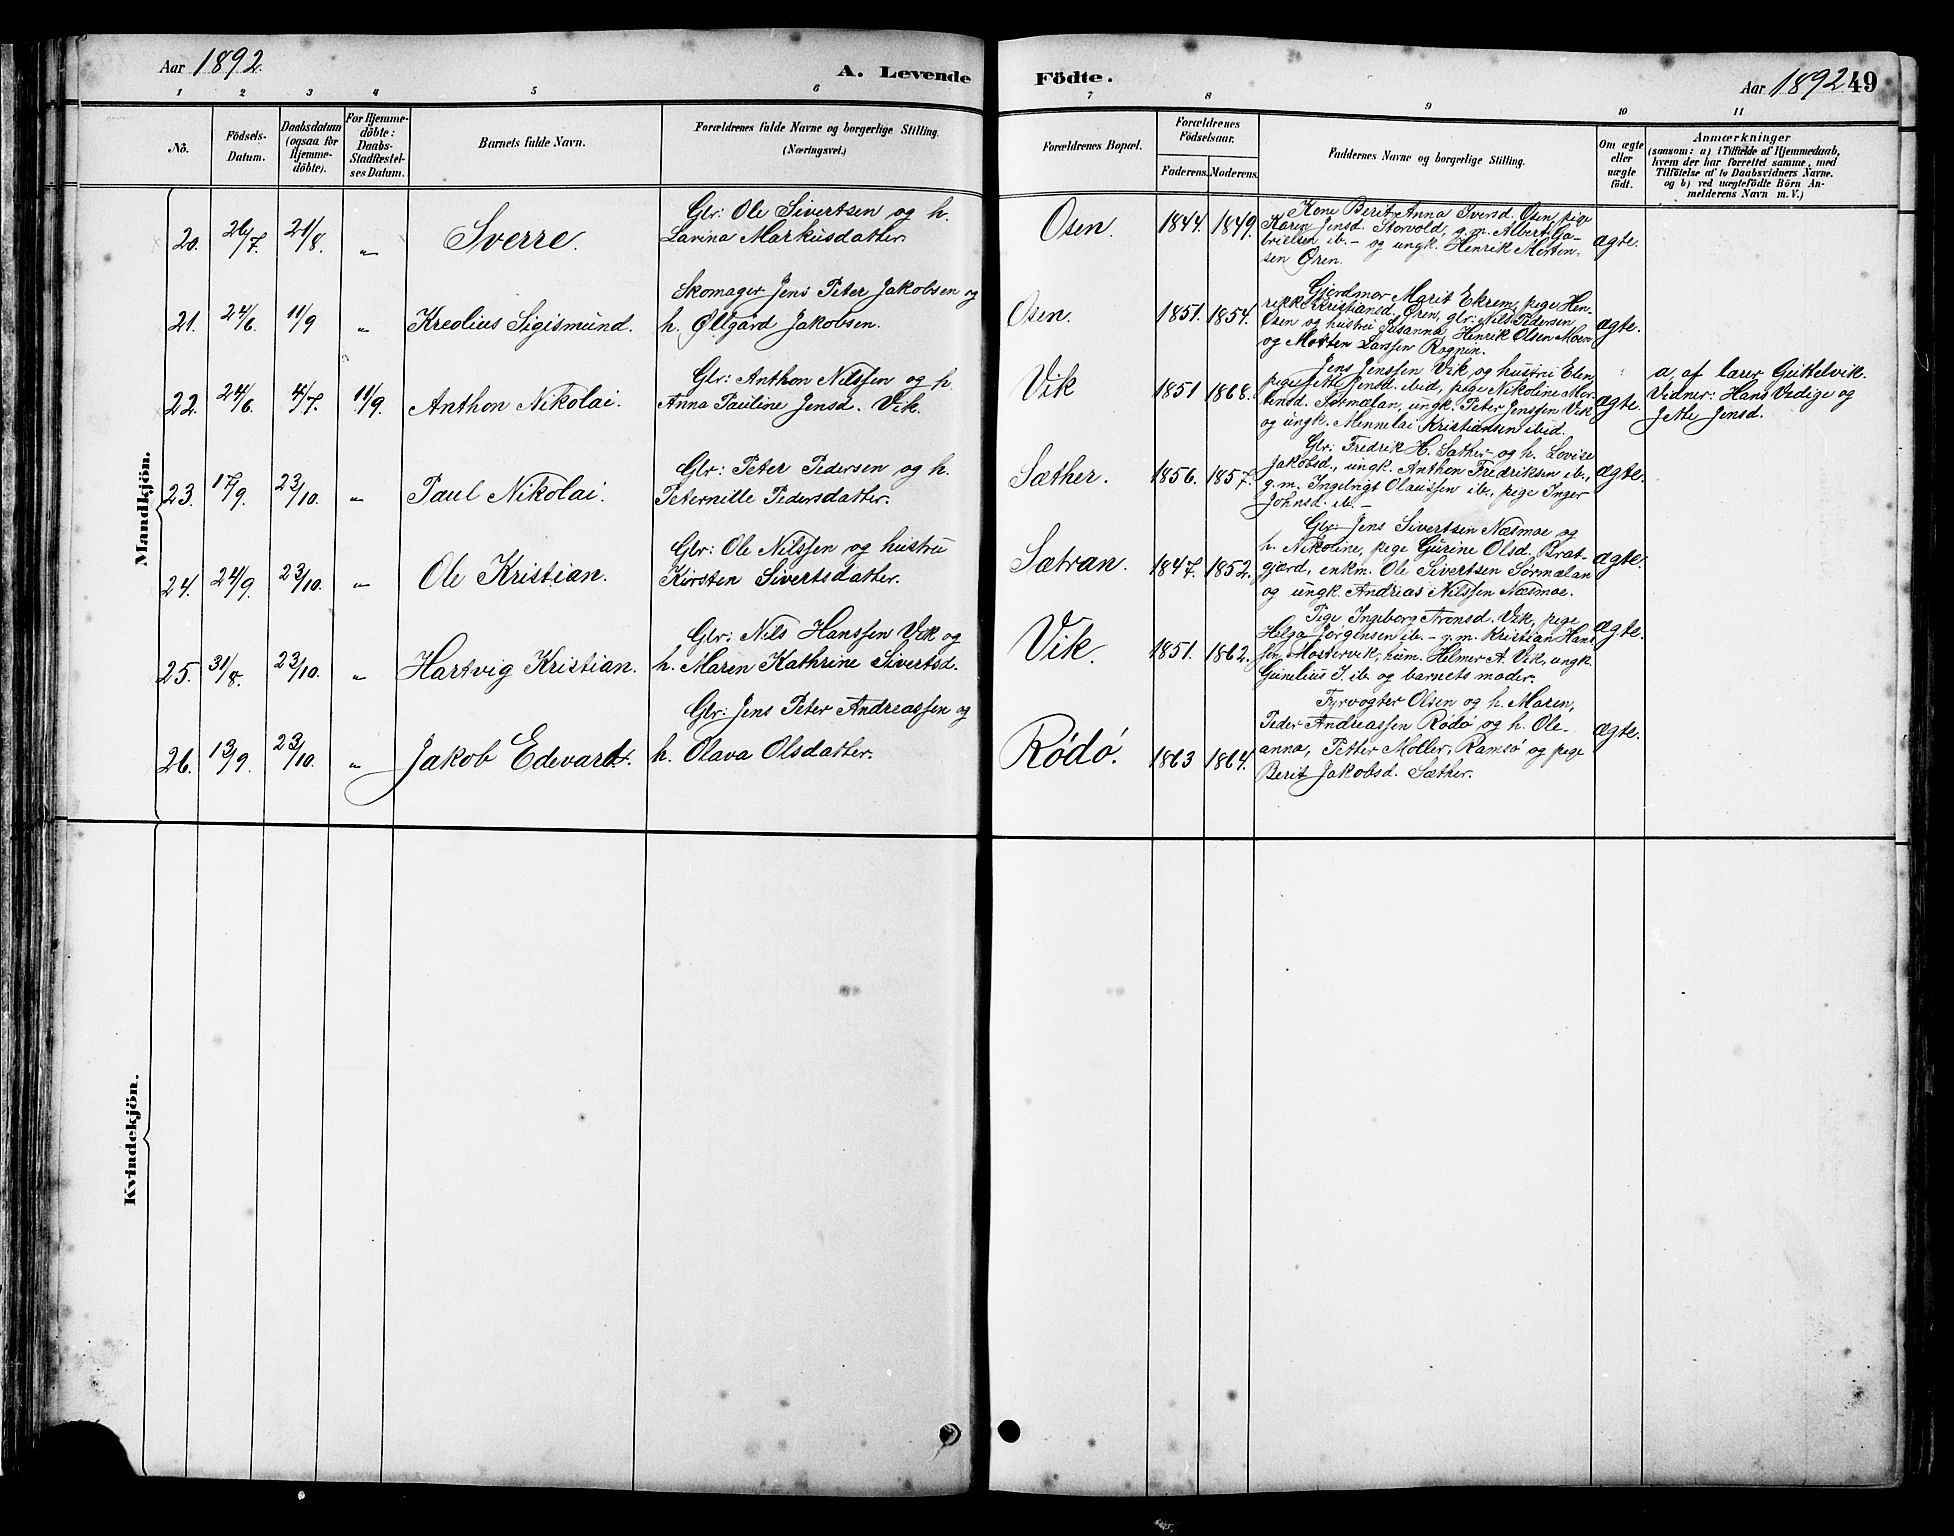 Aar 1892.
A. Levende
Födte.
Aar 1892 49
1 2 3 4 5 6 7 8 9 10 11
No.
Födsels-
Datum.
Daabsdatum
(ogsaa for
Hjemme-
döbte).
For Hjemme-
döbte:
Daabs-
Stadfæstel-
ses Datum.
Barnets fulde Navn.
Forældrenes fulde Navne og borgerlige Stilling.
(Næringsvei.)
Forældrenes Bopæl.
Forældrenes
Födselsaar.
Faderens. Moderens.
Faddernes Navne og borgerlige Stilling.
Om ægte
eller
uægte
födt.
Anmærkninger
(saasom: a) i Tilfælde af Hjemmedaab,
hvem der har forrettet samme, med
Tilföielse af to Daabsvidners Navne,
og b) ved uægtefödte Börn An-
melderens Navn m. V.)
Mandkjön.
20. 26/7. 21/8. „ Sverre.
Glr: Ole Sivertsen og h.
Lavina Markusdatter.
Osen. 1844. 1849.
Kone Berit Anna Iversd. Osen, pige
Karen Jensd. Storvold, g.m. Albert Ga-
brielsen ib. – og ungk. Henrik Morten-
sen Øren.
ægte.
21. 24/6. 11/9 „ Kreolius Sigismund.
Skomager Jens Peter Jakobsen og
h. Øllgård Jakobsen.
Osen. 1851. 1854.
Gjerdmor Marit Ekrem, pige Hen-
rikke Kristiansd. Øren, glr: Nils Pedersen
Osen og hustru Susanna, Henrik Olsen Moen
og Morten Larssen
ægte.
22. 24/6. 4/7. 11/9. Anthon Nikolai.
Glr: Anthon Nilssen og h.
Anna Pauline Jensd. Vik.
Vik 1851 1868.
Jens Jenssen Vik og hustru Elen,
pige Jette Jensd. ibid, pige Nikoline Mor-
tensd. Sørmælan, ungk. Peter Jenssen Vik
og ungk. Mennelai Kristiansen ibid.
ægte.
a, af lærer Guttelvik.
Vidner: Hans Vedige og
Jette Jensd.
23. 17/9. 23/10. „ Paul Nikolai.
Glr: Peter Pedersen og h.
Peternelle Pedersdatter.
Sæther. 1856. 1857.
Glr: Fredrik H. Sæther og h. Lovise
Jakobsd., ungk. Anthon Fredriksen ib.,
g.m. Ingebrigt Olaussen ib., pige Inger
Johnsd. ib. –
ægte.
24. 24/9. 23/10. „ Ole Kristian.
Glr: Ole Nilssen og hustru
Kirsten Sivertsdatter.
Sætran. 1847. 1852.
Glr: Jens Sivertsen Næsmoe og
h. Nikoline, pige Gurine Olsd. Brat-
gjærd, enkm. Ole Sivertsen Sørmælan
og ungk. Andreas Nilssen Næsmoe.
ægte.
25. 31/8. 23/10. „ Hartvig Kristian.
Glr: Nils Hanssen Vik og
h. Maren Kathrine Sivertsd.
Vik. 1851. 1862.
Pige Ingeborg Tronsd. Vik, pige
Helga Jørgensen ib. – g.m. Kristian Hans-
sen Mostervik, hüm. Helmer A. Vik, ungk.
Gunelius J. ib. og barnets moder.
ægte.
26. 13/9. 23/10. „ Jakob Edevard.
Glr: Jens Peter Andreassen og
h. Olava Olsdatter.
Rødø. 1863 1864.
Fyrvogter Olsen og h. Maren,
Peder Andreassen Rødø og h. Ole-
anna, Petter Moller, Ramsø og pige
Berit Jakobsd. Sæther.
ægte.
Kvindekjön.